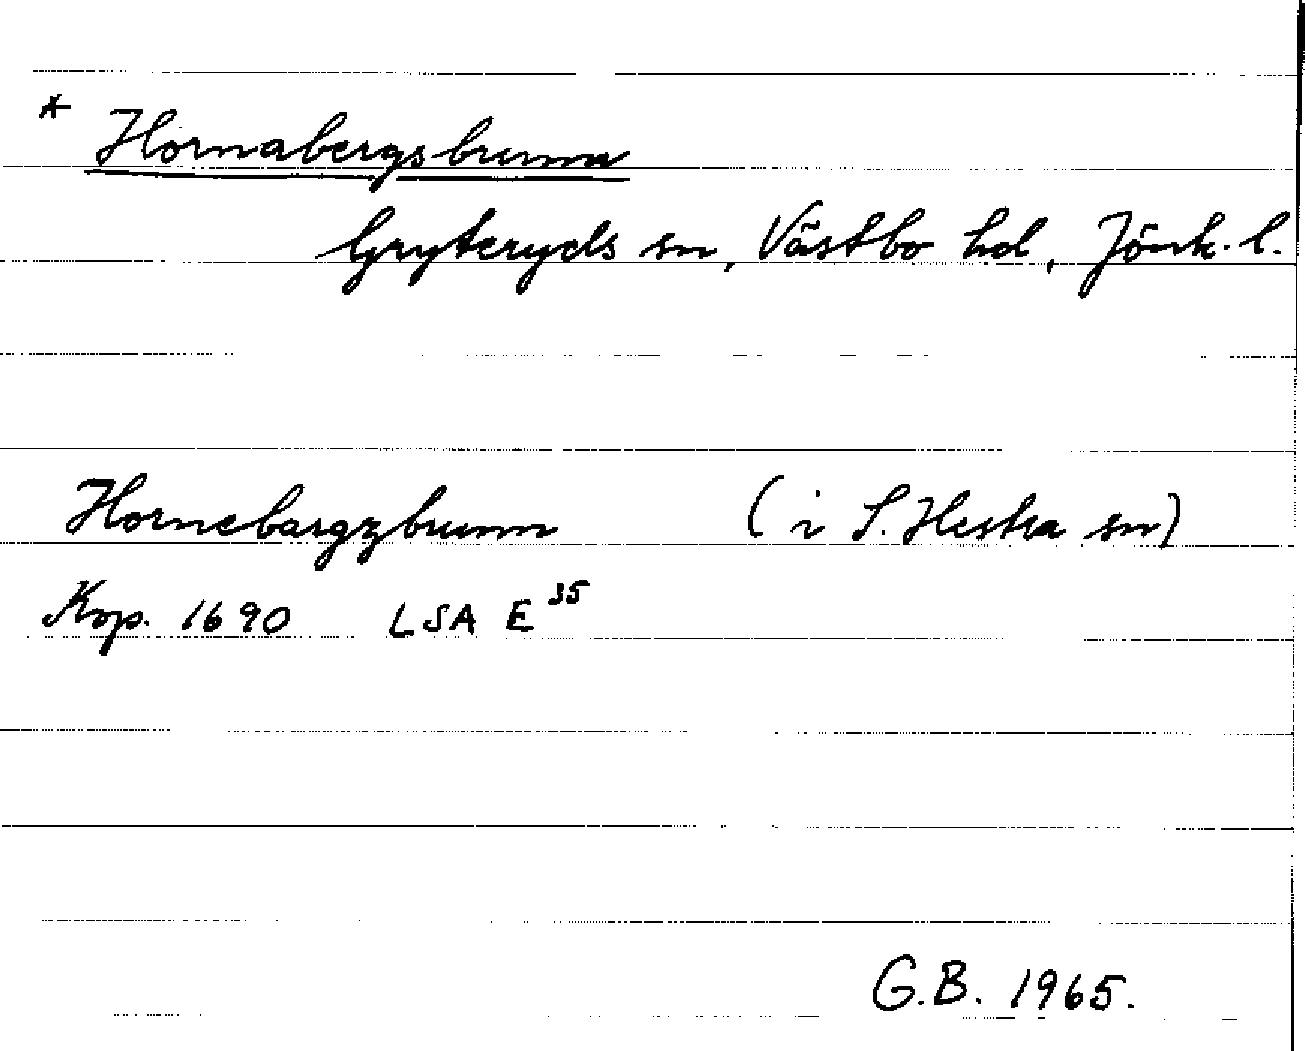 * Hornabergsbrunn
Gryteryds sn, Västbo hd, Jönk. l.
Hornebargzbrunn (i S. Hestra sn)
Kop. 1690 LSA E 35
G.B. 1965.